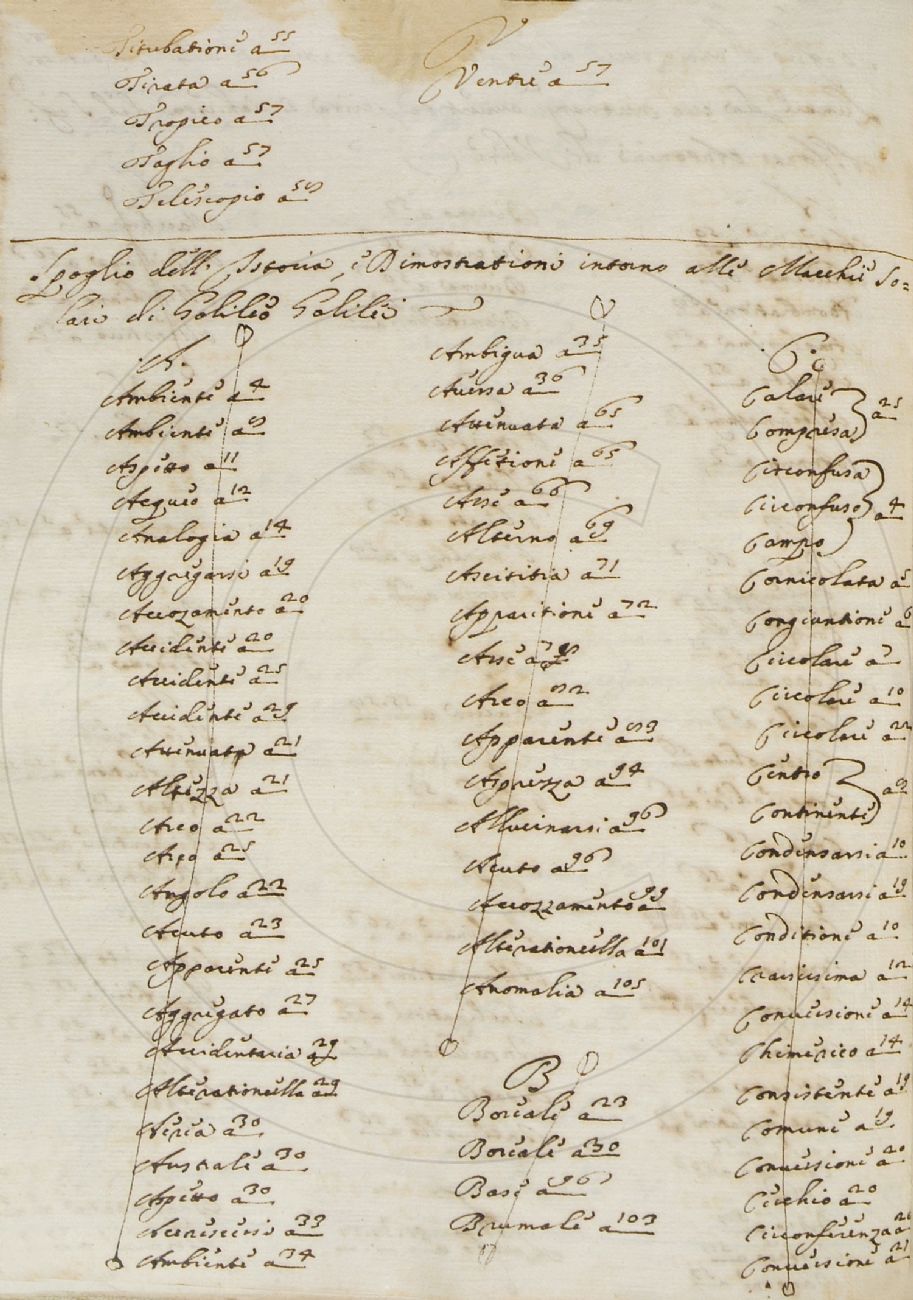 Titubatione a 55
Tirata a 56
Tropico a 57
Taglio a 57
Telescopio a 58
V
Ventre a 57
Spoglio dell' Istoria, e Dimostrationi intorno alle Macchie So=
lari di Galileo Galilei
A.
Ambiente a 4
Ambiente a 8
Aspetto a 11
Acqueo a 12
Analogia a 14
Aggregarsi a 19
Accozamento a 20
Accidente a 20
Accidente a 25
Accidente a 29
Attenuata a 21
Altezza a 21
Arco a 22
Arco a 25
Angolo a 22
Acuto a 23
Apparente a 25
Aggregato a 27
Accidentaria a 29
Alterationcella a 29
Aerea a 30
Australe a 30
Aspetto a 30
Accrescersi a 33
Ambiente a 34
Ambigua a 35
Aversa a 36
Attenuata a 65
Affetioni a 65
Asse a 66
Alterno a 69
Ascititia a 71
Apparitione a 72
Asse a 78
Arco a 82
Apparente a 83
Asprezza a 94
Allucinarsi a 96
Acuto a 96
Accozzamento a 99
Alterationcella a 101
Anomalia a 105
B
Boreale a 23
Boreale a 30
Base a 96
Brumale a 103
C.
Calare
Compresa a 25
Circonfusa
Circonfuso a 4
Campo
Cornicolata a 5
Congiuntione a 6
Circolare a 7
Circolare a 10
Circolare a 22
Centro
Continente a 9
Condensarsi a 10
Condensarsi a 19
Conditione a 10
Crassissima a 12
Conversione a 14
Chimerico a 14
Consistente a 19
Comune a 19.
Conversione a 20
Cerchio a 20
Circonferenza a 21
Conversione a 21